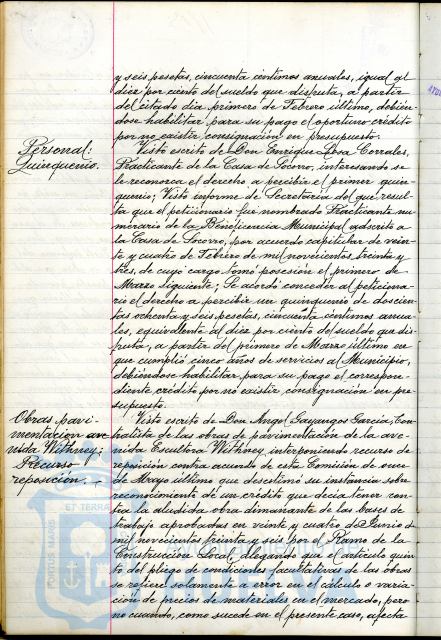 y seis pesetas, cincuenta centimos anuales, igual al
diez por ciento del sueldo que disfruta, a partir
del citado dia primero de Febrero último, debien-
dose habilitar para su pago el oportuno credito
por no existir consignación en presupuesto.
Personal:
Quinquenio.
Visto escrito de Don Enrique Sosa Corrales,
Practicante de la Casa de Socorro, interesando se
le reconozca el derecho a percibir el primer quin-
quenio; Visto informe de Secretaria del que resul-
ta que el peticionario fue nombrado Practicante nu-
merario de la Beneficencia Municipal adscrito a
la Casa de Socorro, por acuerdo capitular de vein-
te y cuatro de Febrero de mil novecientos treinta y
tres, de cuyo cargo tomó posesión el primero de
Marzo siguiente; Se acordó conceder al peticiona-
rio el derecho a percibir un quinquenio de doscien-
tos ochenta y seis pesetas, cincuenta centimos anua-
les, equivalente al diez por ciento del sueldo que dis-
fruta, a partir del primero de Marzo último en
que cumplió cinco años de servicios al Municipio,
debiéndose habilitar para su pago el correspon-
diente crédito por no existir consignación en pre-
supuesto.
Obras pavi-
mentación ave-
nida Withney:
Recurso
reposición: -
Visto escrito de Don Angel Gayangos Garcia, Con-
tratista de las obras de pavimentación de la ave-
nida Escultora Withney, interponiendo recurso de
reposición contra acuerdo de esta Comisión de once
de Mayo último que desestimó su instancia sobre
reconocimiento de un crédito que decia tener con-
tra la aludida obra dimanante de las bases de
trabajo aprobadas en veinte y cuatro de Junio de
mil novecientos treinta y seis por el Ramo de la
Construcción Local, alegando que el articulo quin-
to del pliego de condiciones facultativas de las obras
se refiere solamente a error en el cálculo o varia-
ción de precios de materiales en el mercado, pero
no cuando, como sucede en el presente caso, afecta
PORTUS MARIS ET TERRA